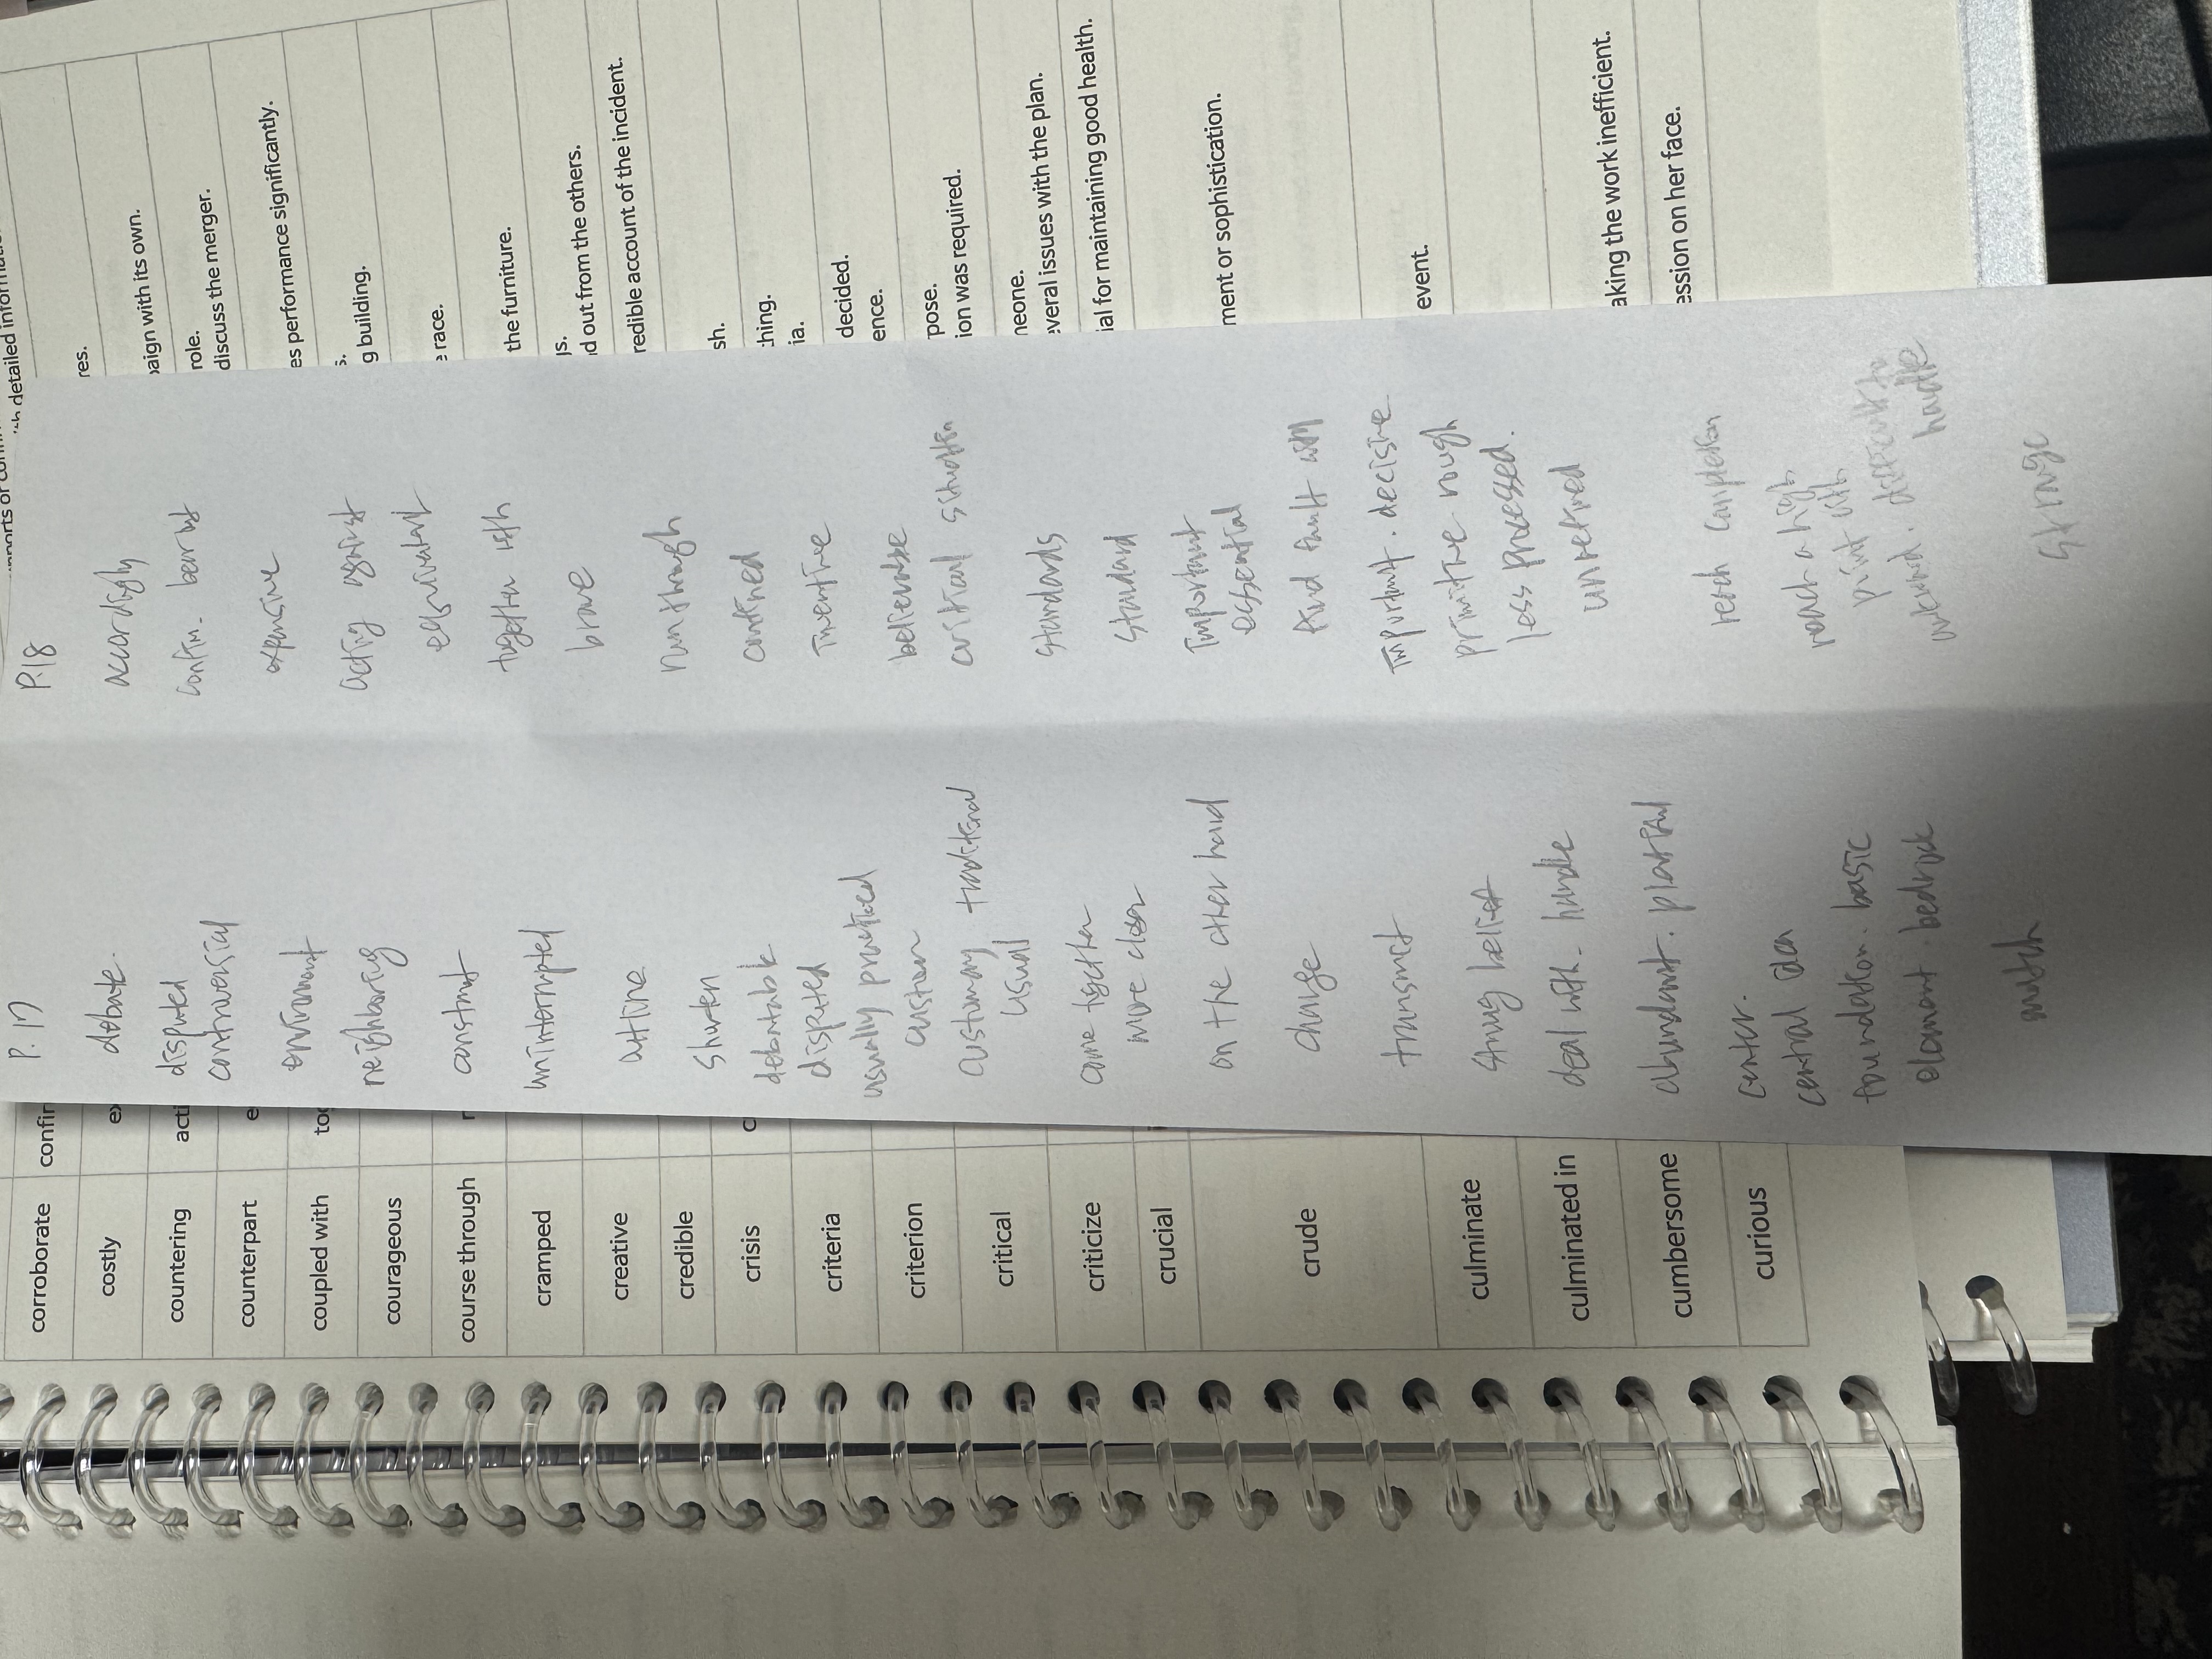 corroborate
costly
countering
counterpart
coupled with
courageous
course through
cramped
creative
credible
crisis
criteria
criterion
critical
criticize
crucial
crude
culminate
culminated in
cumbersome
curious
confir
ex
acti
e
too
r
c
P. 17
debate.
disputed
controversial
environment
neighboring
constant
uninterrupted
outline
shorten
debatable
disputed
usually practiced
custom
customary traditional
usual
come together
move closer
on the other hand
change
transmit
strong belief
deal with. handle
abundant. plentiful
center.
central idea
foundation. basic
element. bedrock
match
P.18
accordingly
confirm.
expensive
acting against
equivalent
together with
brave
run through
confined
inventive
believable
critical situation
standards
standard
Important
essential
find fault with
Important. decisive
primitive rough
less processed.
unrefined
reach completion
reach a high
point with
awkward. difficult to
handle
strange
detailed informa
res.
paign with its own.
role.
discuss the merger.
es performance significantly.
s.
g building.
race.
the furniture.
d out from the others.
redible account of the incident.
sh.
thing.
ia.
decided.
ence.
pose.
ion was required.
neone.
everal issues with the plan.
ial for maintaining good health.
ment or sophistication.
event.
aking the work inefficient.
ession on her face.